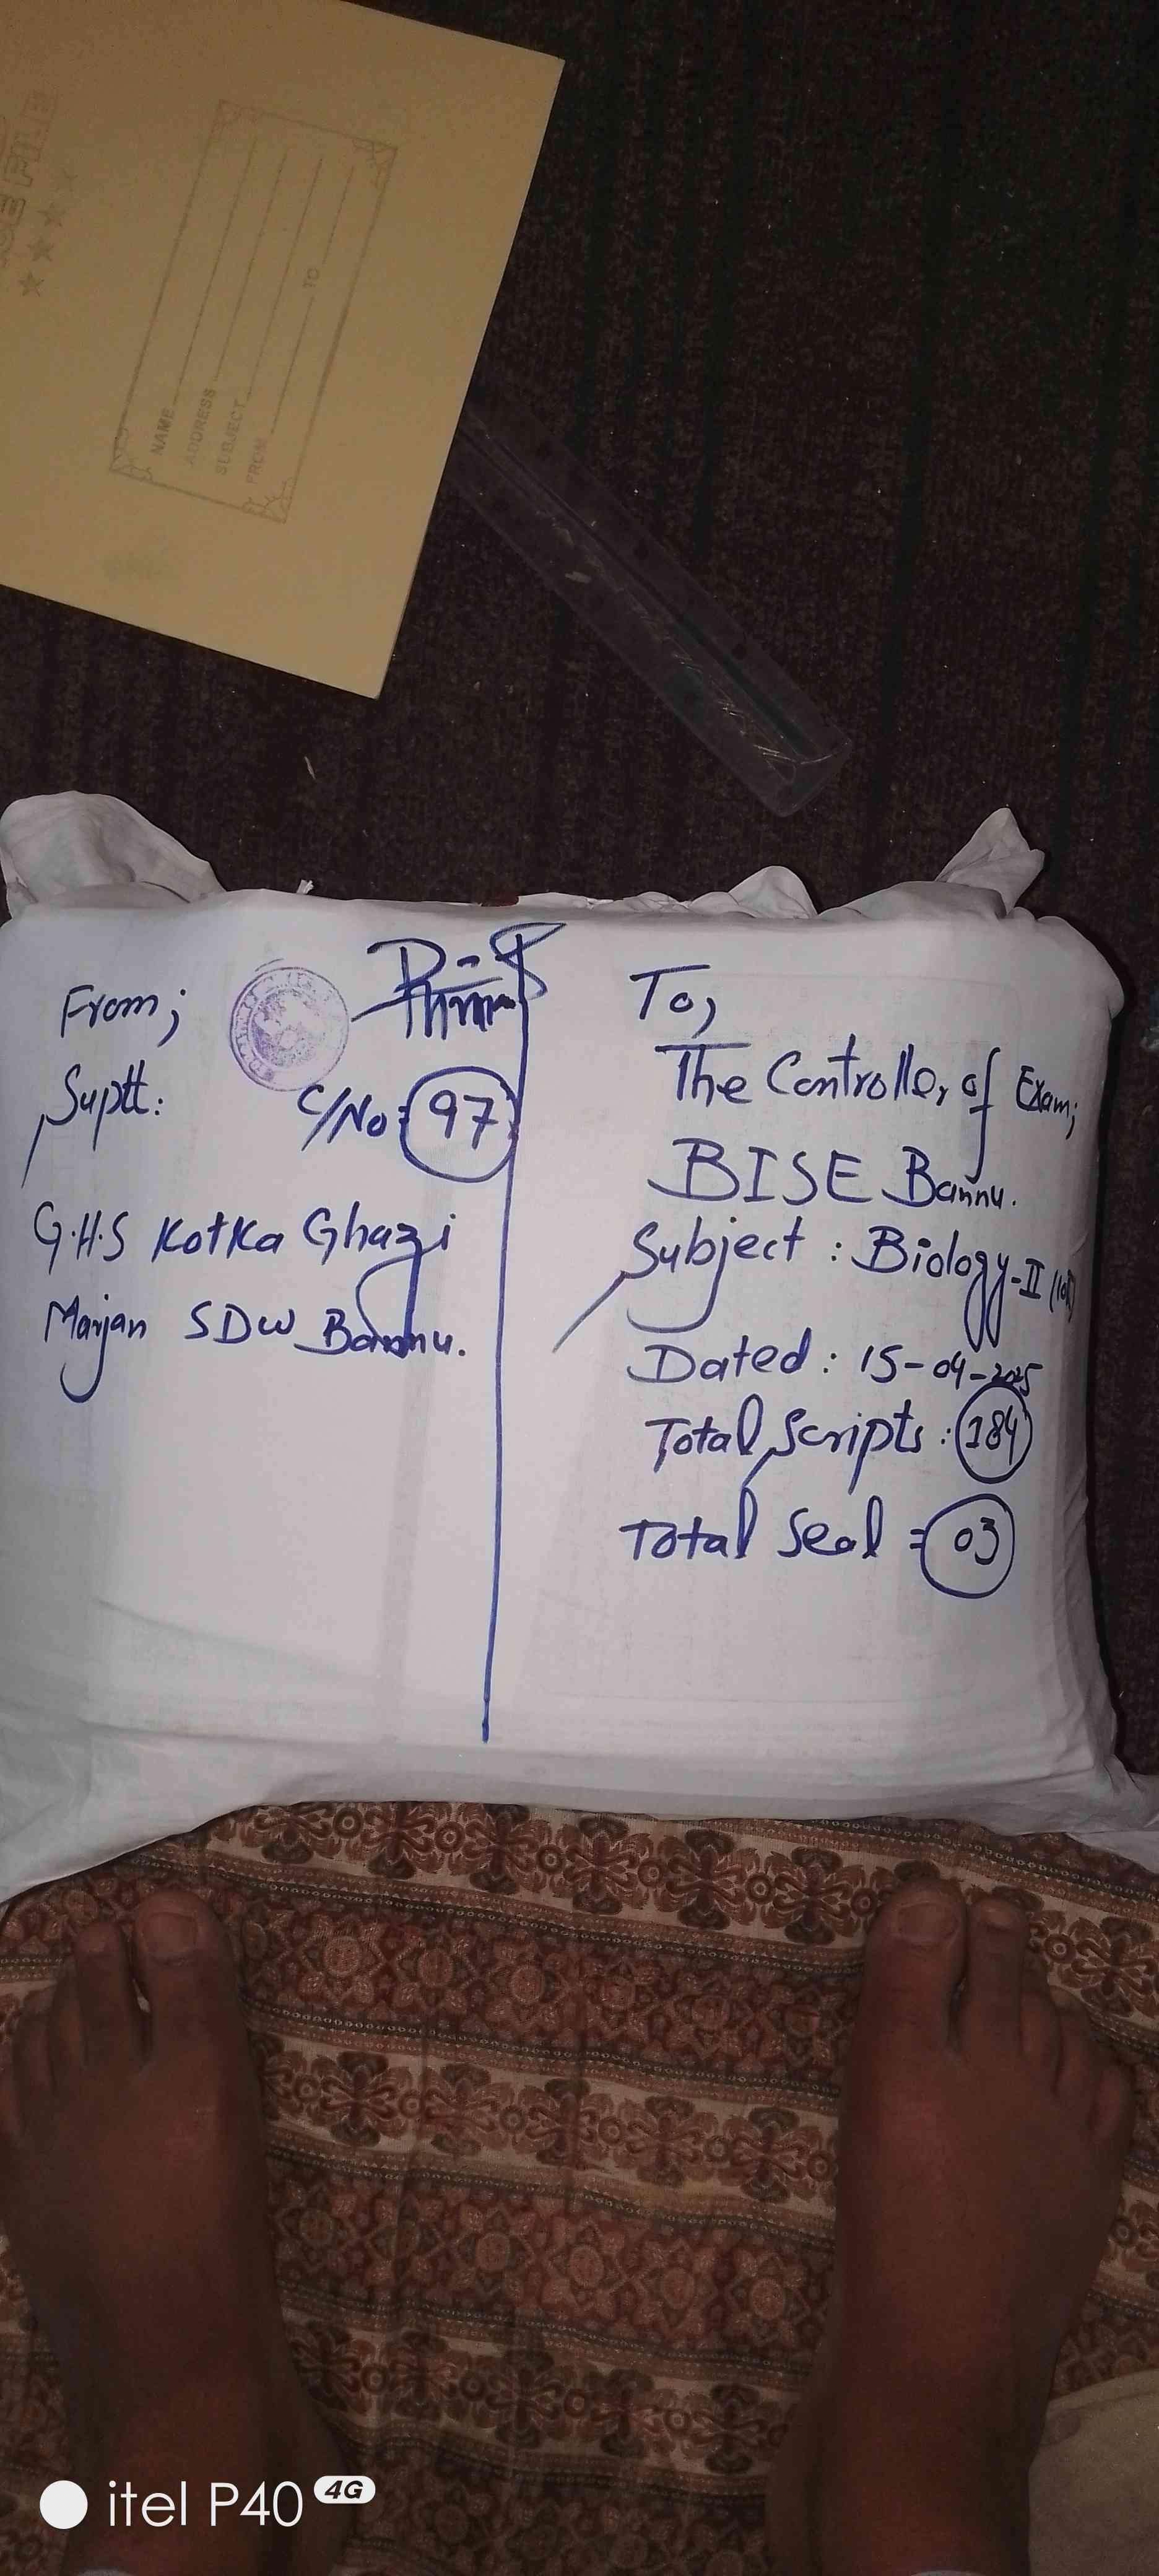 NAME
ADDRESS
SUBJECT
FROM TO
From;
Suptt:
C/No: 97
G.H.S Kotka Ghazi
Marjan SDW Bannu.
To,
The Controller of Exam;
BISE Bannu.
Subject : Biology-II
Dated : 15-04-2025
Total Scripts : 184
Total Seal = 03
itel P40 4G